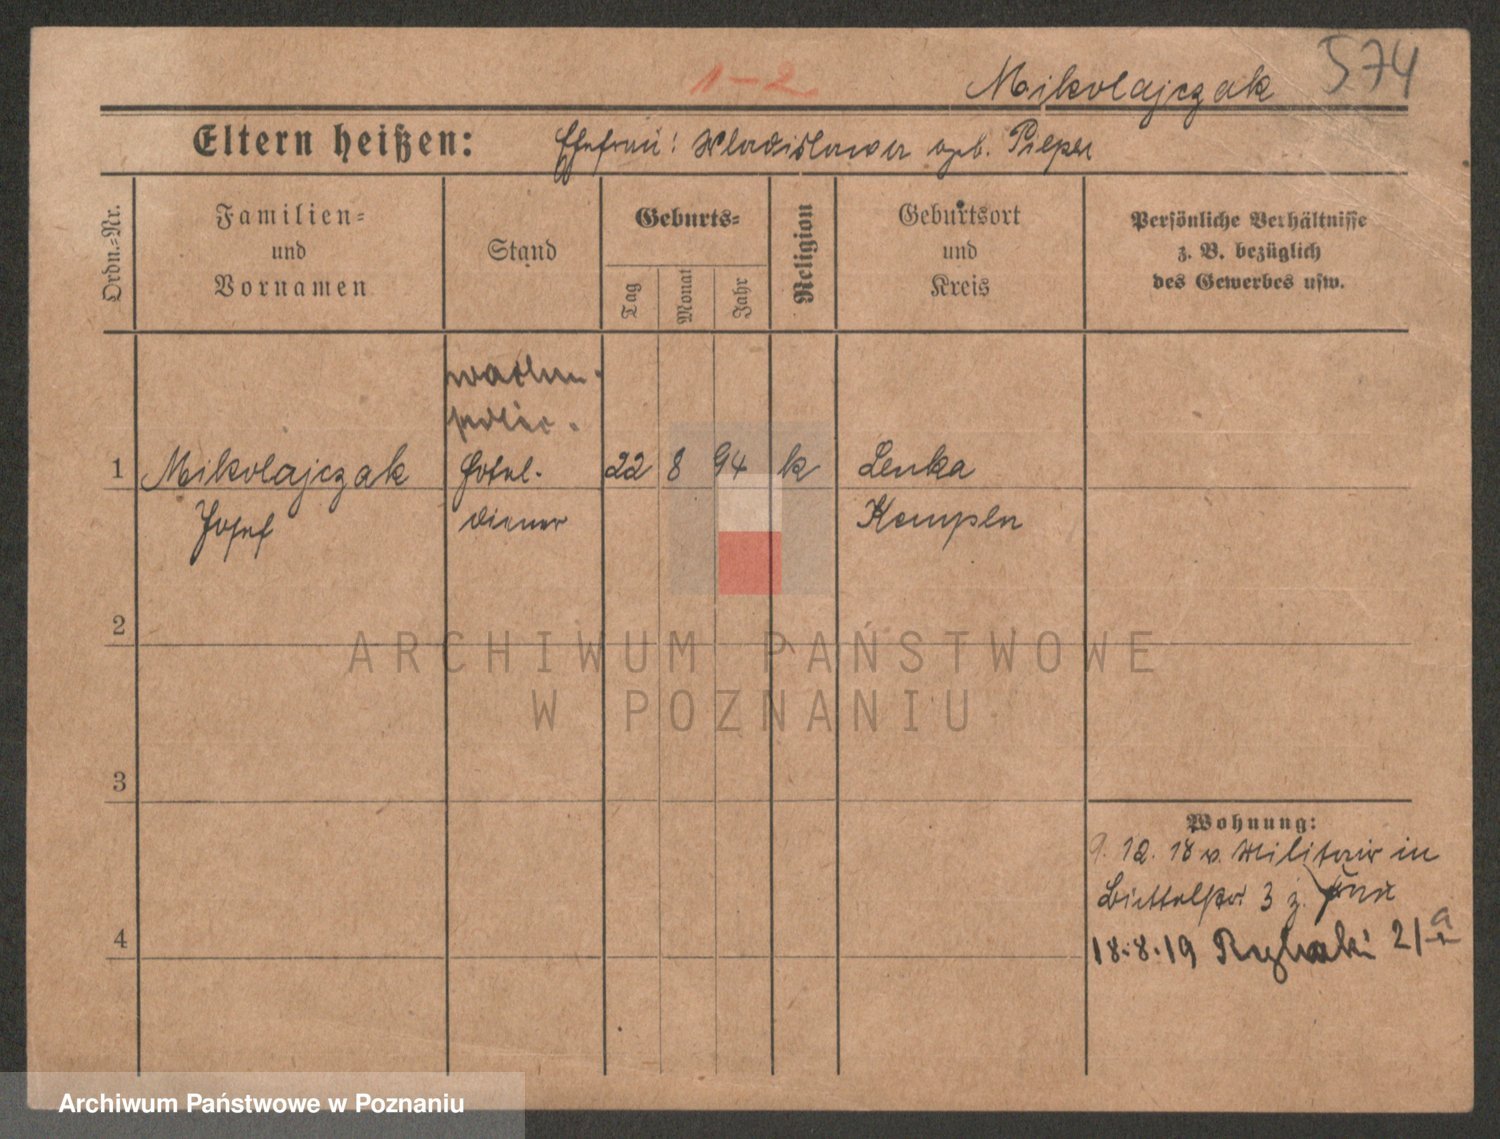 574
1-2
Mikolajczak
Eltern heißen: Ehefrau: Wladislawa geb. Pieper
Ordn.=Nr.
Familien=
und
Vornamen
Stand
Geburts=
Tag
Monat
Jahr
Religion
Geburtsort
und
Kreis
Persönliche Verhältnisse
z. B. bezüglich
des Gewerbes usw.
1 Mikolajczak Hotel- 22 8 94 k Lenka
Josef diener Kempen
2
3
4
Wohnung:
9. 12. 18 v. Militair in
3 z. Frau
18.8.19 21
ARCHIWUM PAŃSTWOWE
W POZNANIU
Archiwum Państwowe w Poznaniu